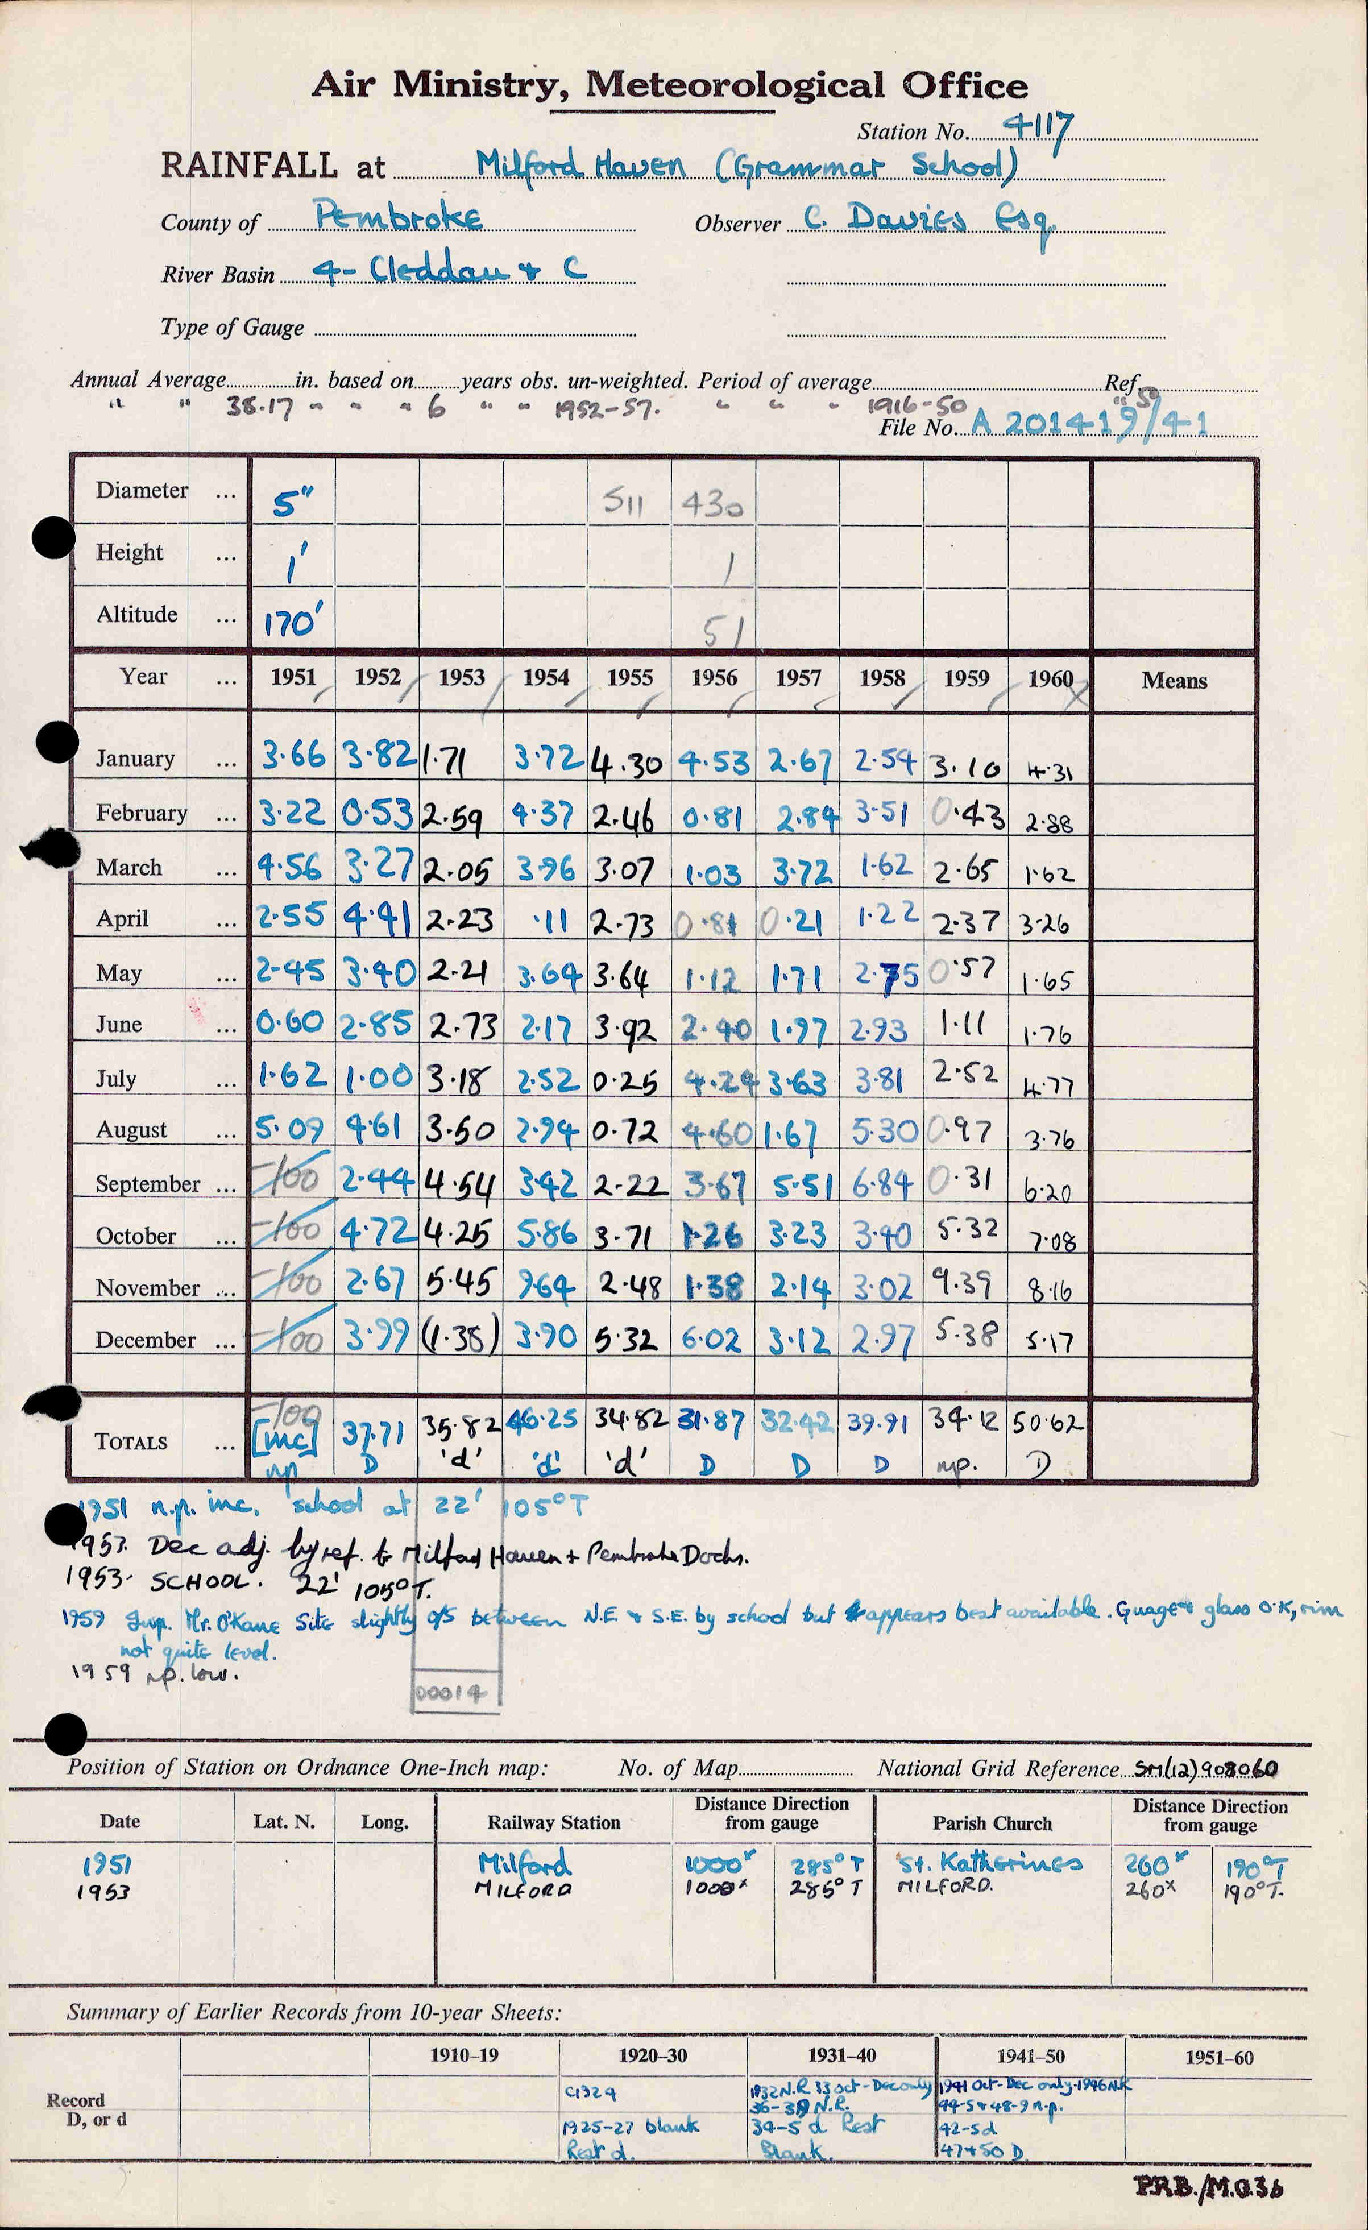 Air Ministry, Meteorological Office
Station No. 4117
RAINFALL at Milford Haven (Grammar School)
County of Pembroke Observer C. Davies Esq.
River Basin 4- Cleddau & C
Type of Gauge
Annual Average in. based on years obs. un-weighted. Period of average Ref.
" " 38.17 " " " 6 " " 1952-57. " " " 1916-50 " 50
File No. A 201419/41
Diameter ... 5" 511 430
Height ... 1' 1
Altitude ... 170' 51
Year ... 1951 1952 1953 1954 1955 1956 1957 1958 1959 1960 Means
January ... 3.66 3.82 1.71 3.72 4.30 4.53 2.67 2.54 3.10 4.31
February ... 3.22 0.53 2.59 4.37 2.46 0.81 2.84 3.51 0.43 2.88
March ... 4.56 3.27 2.05 3.96 3.07 1.03 3.72 1.62 2.65 1.62
April ... 2.55 4.41 2.23 .11 2.73 0.81 0.21 1.22 2.37 3.26
May ... 2.45 3.40 2.21 3.64 3.64 1.12 1.71 2.75 0.57 1.65
June ... 0.60 2.85 2.73 2.17 3.92 2.40 1.97 2.93 1.11 1.76
July ... 1.62 1.00 3.18 2.52 0.25 4.24 3.63 3.81 2.52 4.77
August ... 5.09 4.61 3.50 2.94 0.72 4.60 1.67 5.30 0.97 3.76
September ... -100 2.44 4.54 3.42 2.22 3.67 5.51 6.84 0.31 6.20
October ... -100 4.72 4.25 5.86 3.71 1.26 3.23 3.40 5.32 7.08
November ... -100 2.67 5.45 9.64 2.48 1.38 2.14 3.02 9.39 8.16
December ... -100 3.99 (1.38) 3.90 5.32 6.02 3.12 2.97 5.38 5.17
-100
TOTALS ... [inc] 37.71 35.82 46.25 34.82 31.87 32.42 39.91 34.12 50.62
np D 'd' 'd' 'd' D D D np. D
1951 n.p. inc. school at 22' 105°T
1953. Dec adj. by ref. to Milford Haven + Pembroke Docks.
1953. SCHOOL. 22' 105°T.
1959 Insp. Mr. O'Kane Site slightly o/s between N.E & S.E. by school but appears best available. Guage & glass O.K, rim
not quite level.
1959 np. low.
00014
Position of Station on Ordnance One-Inch map: No. of Map National Grid Reference SM(12)908060
Date Lat. N. Long. Railway Station Distance Direction from gauge Parish Church Distance Direction from gauge
1951 Milford 1000x 285° T St. Katherines 260x 190°T
1953 MILFORD 1000x 285° T MILFORD. 260x 190°T.
Summary of Earlier Records from 10-year Sheets:
1910–19 1920–30 1931–40 1941–50 1951–60
Record D, or d
1932 N.R. 33 Oct-Dec only 1941 Oct-Dec only. 1946 N.R
36-39 N.R. 44-5 & 48-9 n.p.
1925-27 blank 34-5 d Rest 42-5d
Rest d. Blank. 47+50 D.
P.R.B./M.O.36